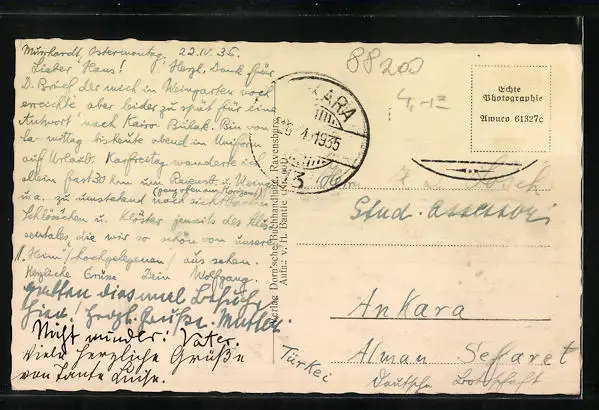 Murrhardt, Ostermontag, 22.IV.35.
Lieber Hans! Herzl. Dank für
D. Brief der mich in Weingarten noch
erreichte aber leider zu spät für eine
Antwort nach Kairo Bulak. Bin von
bis heute abend in Uniform
auf Urlaub. Karfreitag wanderte ich
allein fast 30 km um Ravensb. u. Weing.
u.a. zu umstehend noch
Schlösschen u. Klöster jenseits des
die wir so schön von unserem
"Heim" (hochgelegenen) aus sehen.
Herzliche Grüsse Dein Wolfgang.
Herzl. Grüße. Mutter.
Nicht minder! Vater.
Viele herzliche Grüße
von Tante Luise.
Verlag Dorn'sche Buchhandlung, Ravensburg.
Aufn.: v. H. Bantle
88200
ANKARA
4.1935
3
Echte
Photographie
Awuco 61327c
Herrn
Stud. assessor
Ankara
Alman Sefaret
Deutsche Botschaft
Türkei